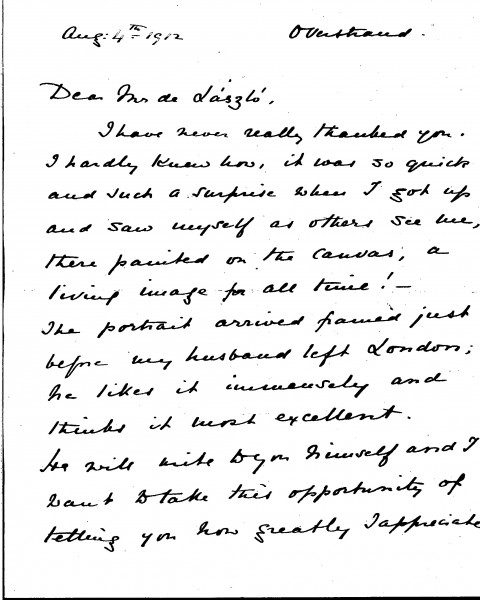 Aug: 4th 1912 Overstrand.
Dear Mr de László,
I have never really thanked you.
I hardly knew how, it was so quick
and such a surprise when I got up
and saw myself as others see me,
there painted on the canvas, a
living image for all time! —
The portrait arrived framed just
before my husband left London;
he likes it immensely and
thinks it most excellent.
He will write to you himself and I
want to take this opportunity of
telling you how greatly I appreciate